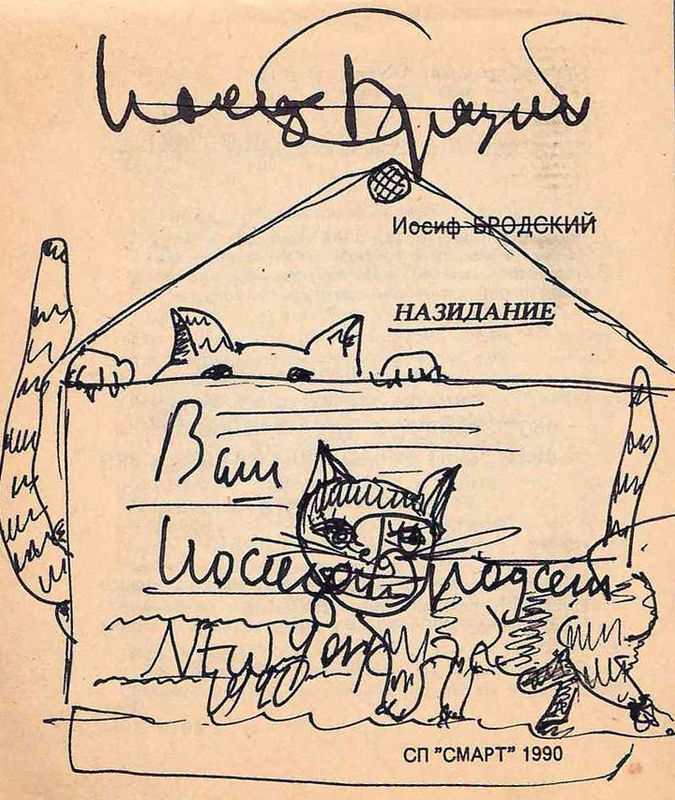 Иосиф Бродский
Иосиф БРОДСКИЙ
НАЗИДАНИЕ
Ваш
Иосиф Бродский
New York
1990
СП "СМАРТ" 1990